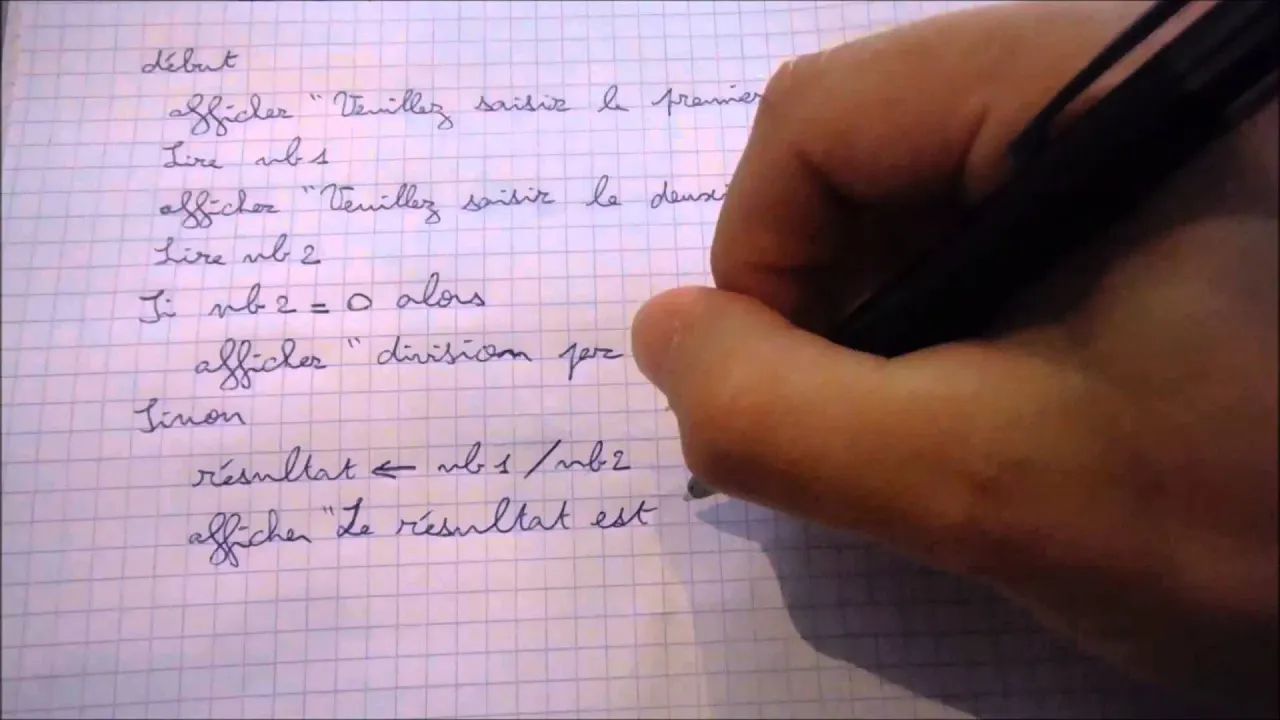 début
afficher "Veuillez saisir le premier
Lire nb1
afficher "Veuillez saisir le deuxi
Lire nb2
Si nb2 = 0 alors
afficher "division par
Sinon
résultat ← nb1/nb2
afficher "Le résultat est